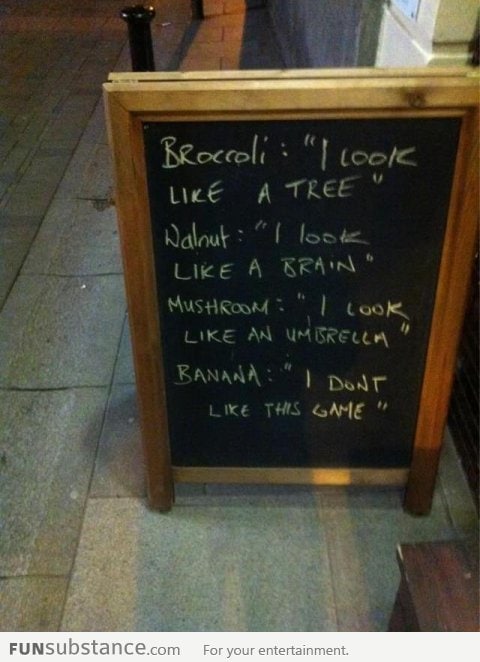 Broccoli: "I LOOK
LIKE A TREE"
Walnut: "I look
LIKE A BRAIN"
MUSHROOM: "I LOOK
LIKE AN UMBRELLA"
BANANA: "I DONT
LIKE THIS GAME"
FUNsubstance.com For your entertainment.